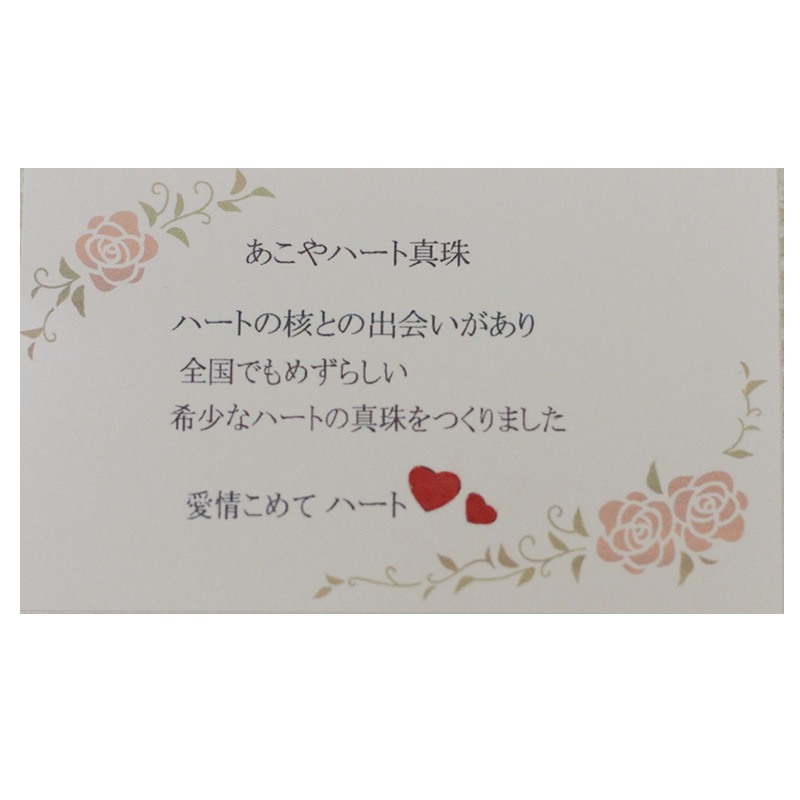 あこやハート真珠
ハートの核との出会いがあり
全国でもめずらしい
希少なハートの真珠をつくりました
愛情こめて ハート